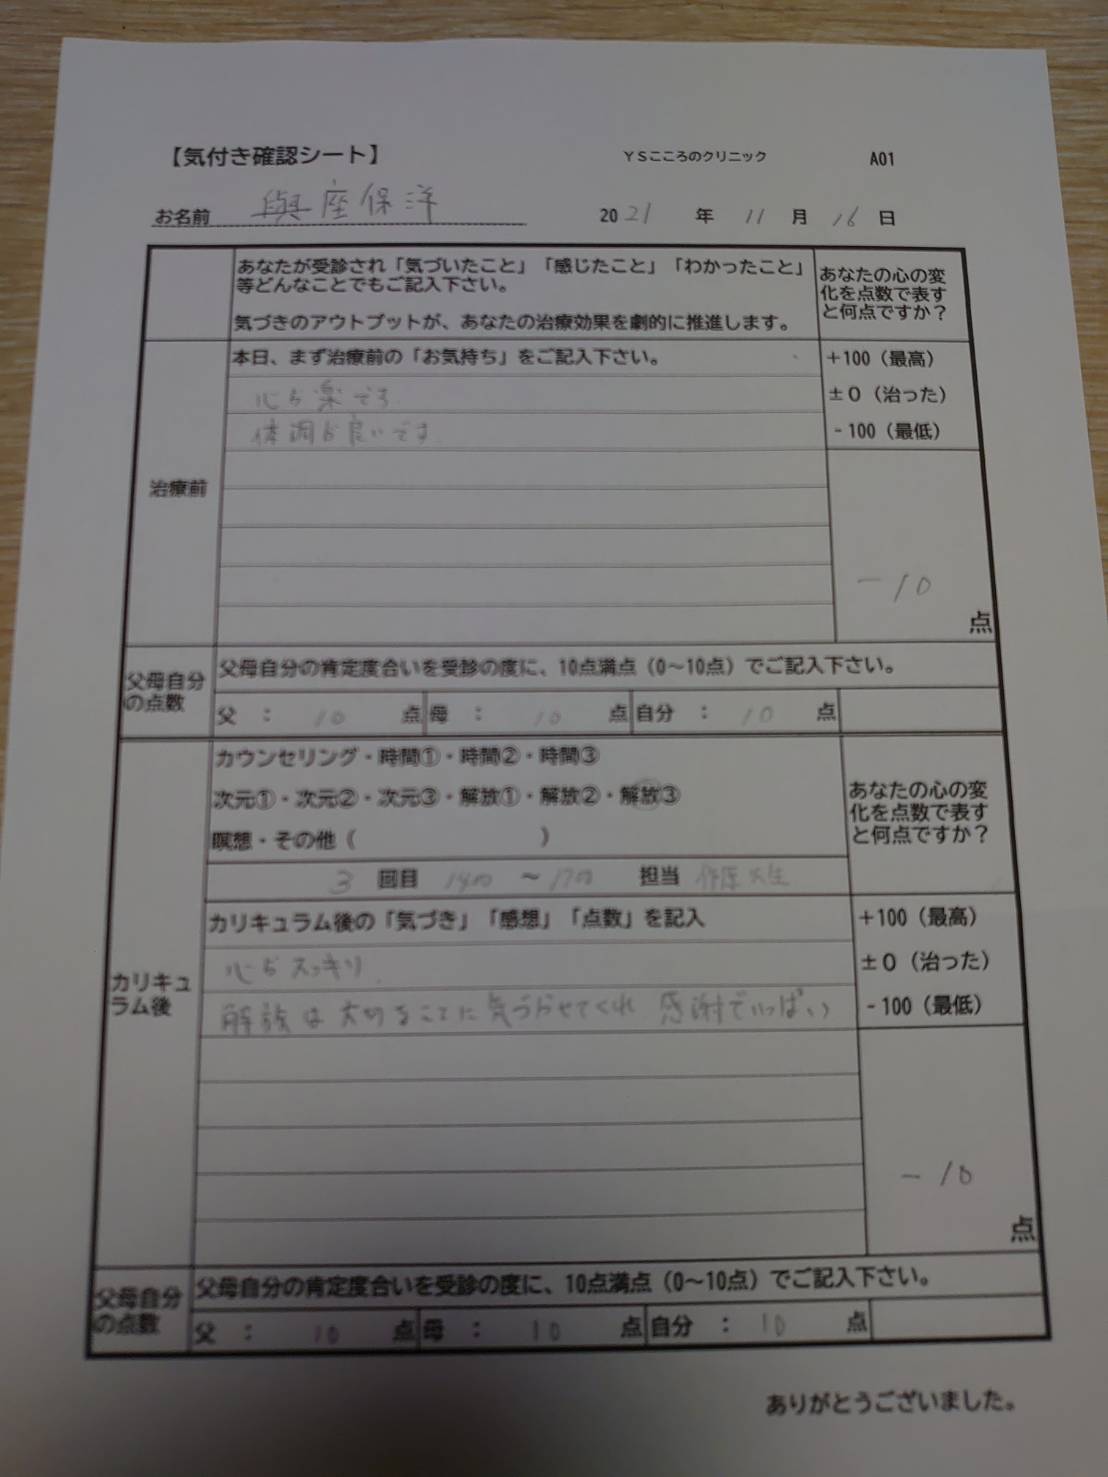 【気付き確認シート】 YSこころのクリニック A01
お名前 與座保洋 2021年11月16日
あなたが受診され「気づいたこと」「感じたこと」「わかったこと」
等どんなことでもご記入下さい。
気づきのアウトプットが、あなたの治療効果を劇的に推進します。
あなたの心の変
化を点数で表す
と何点ですか？
治療前
本日、まず治療前の「お気持ち」をご記入下さい。
心が楽です
体調が良いです
+100（最高）
±0（治った）
-100（最低）
-10
点
父母自分
の点数
父母自分の肯定度合いを受診の度に、10点満点（0～10点）でご記入下さい。
父 ： 10 点 母 ： 10 点 自分 ： 10 点
カリキュ
ラム後
カウンセリング・時間①・時間②・時間③
次元①・次元②・次元③・解放①・解放②・解放③
瞑想・その他（ ）
3 回目 1400 ～1700 担当
あなたの心の変
化を点数で表す
と何点ですか？
カリキュラム後の「気づき」「感想」「点数」を記入
心がスッキリ
解放は大切なことに気づかせてくれ 感謝でいっぱい
+100（最高）
±0（治った）
-100（最低）
-10
点
父母自分
の点数
父母自分の肯定度合いを受診の度に、10点満点（0～10点）でご記入下さい。
父 ： 10 点 母 ： 10 点 自分 ： 10 点
ありがとうございました。